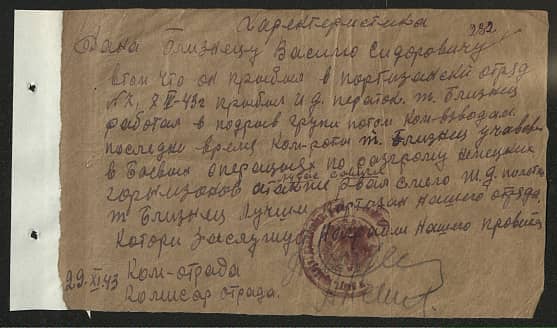 Характеристика
282
Дана Близнецу Василю Сидоровичу
втом что он прыбыл в портизанский отряд
прыбыл т. Близнец
работал в подрыв групи потом Ком-взводам
последни время Ком-роты т. Близнец учавсв
в Боевых операцыях по разгрому немецких
горнизонов атакже рвал ж.д. полотно
т Близнец Лучшы портизан нашего отряда.
Котори Заслужуе Награды Нашего провит
29.XI.43
Ком-отрада
Комисар отрада.